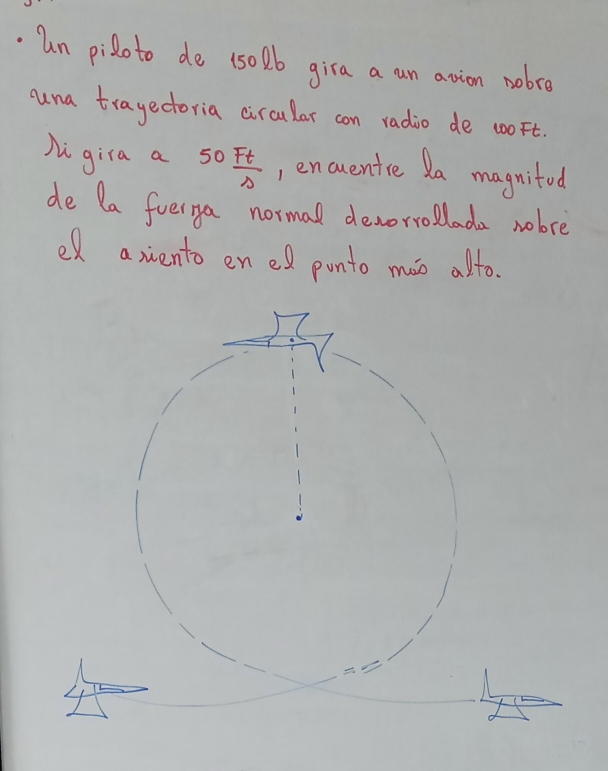 • Un piloto de 150lb gira a un avion sobre
una trayectoria circular con radio de 100 Ft.
Si gira a 50 Ft/s, encuentre la magnitud
de la fuerza normal desorrollada sobre
el asiento en el punto más alto.